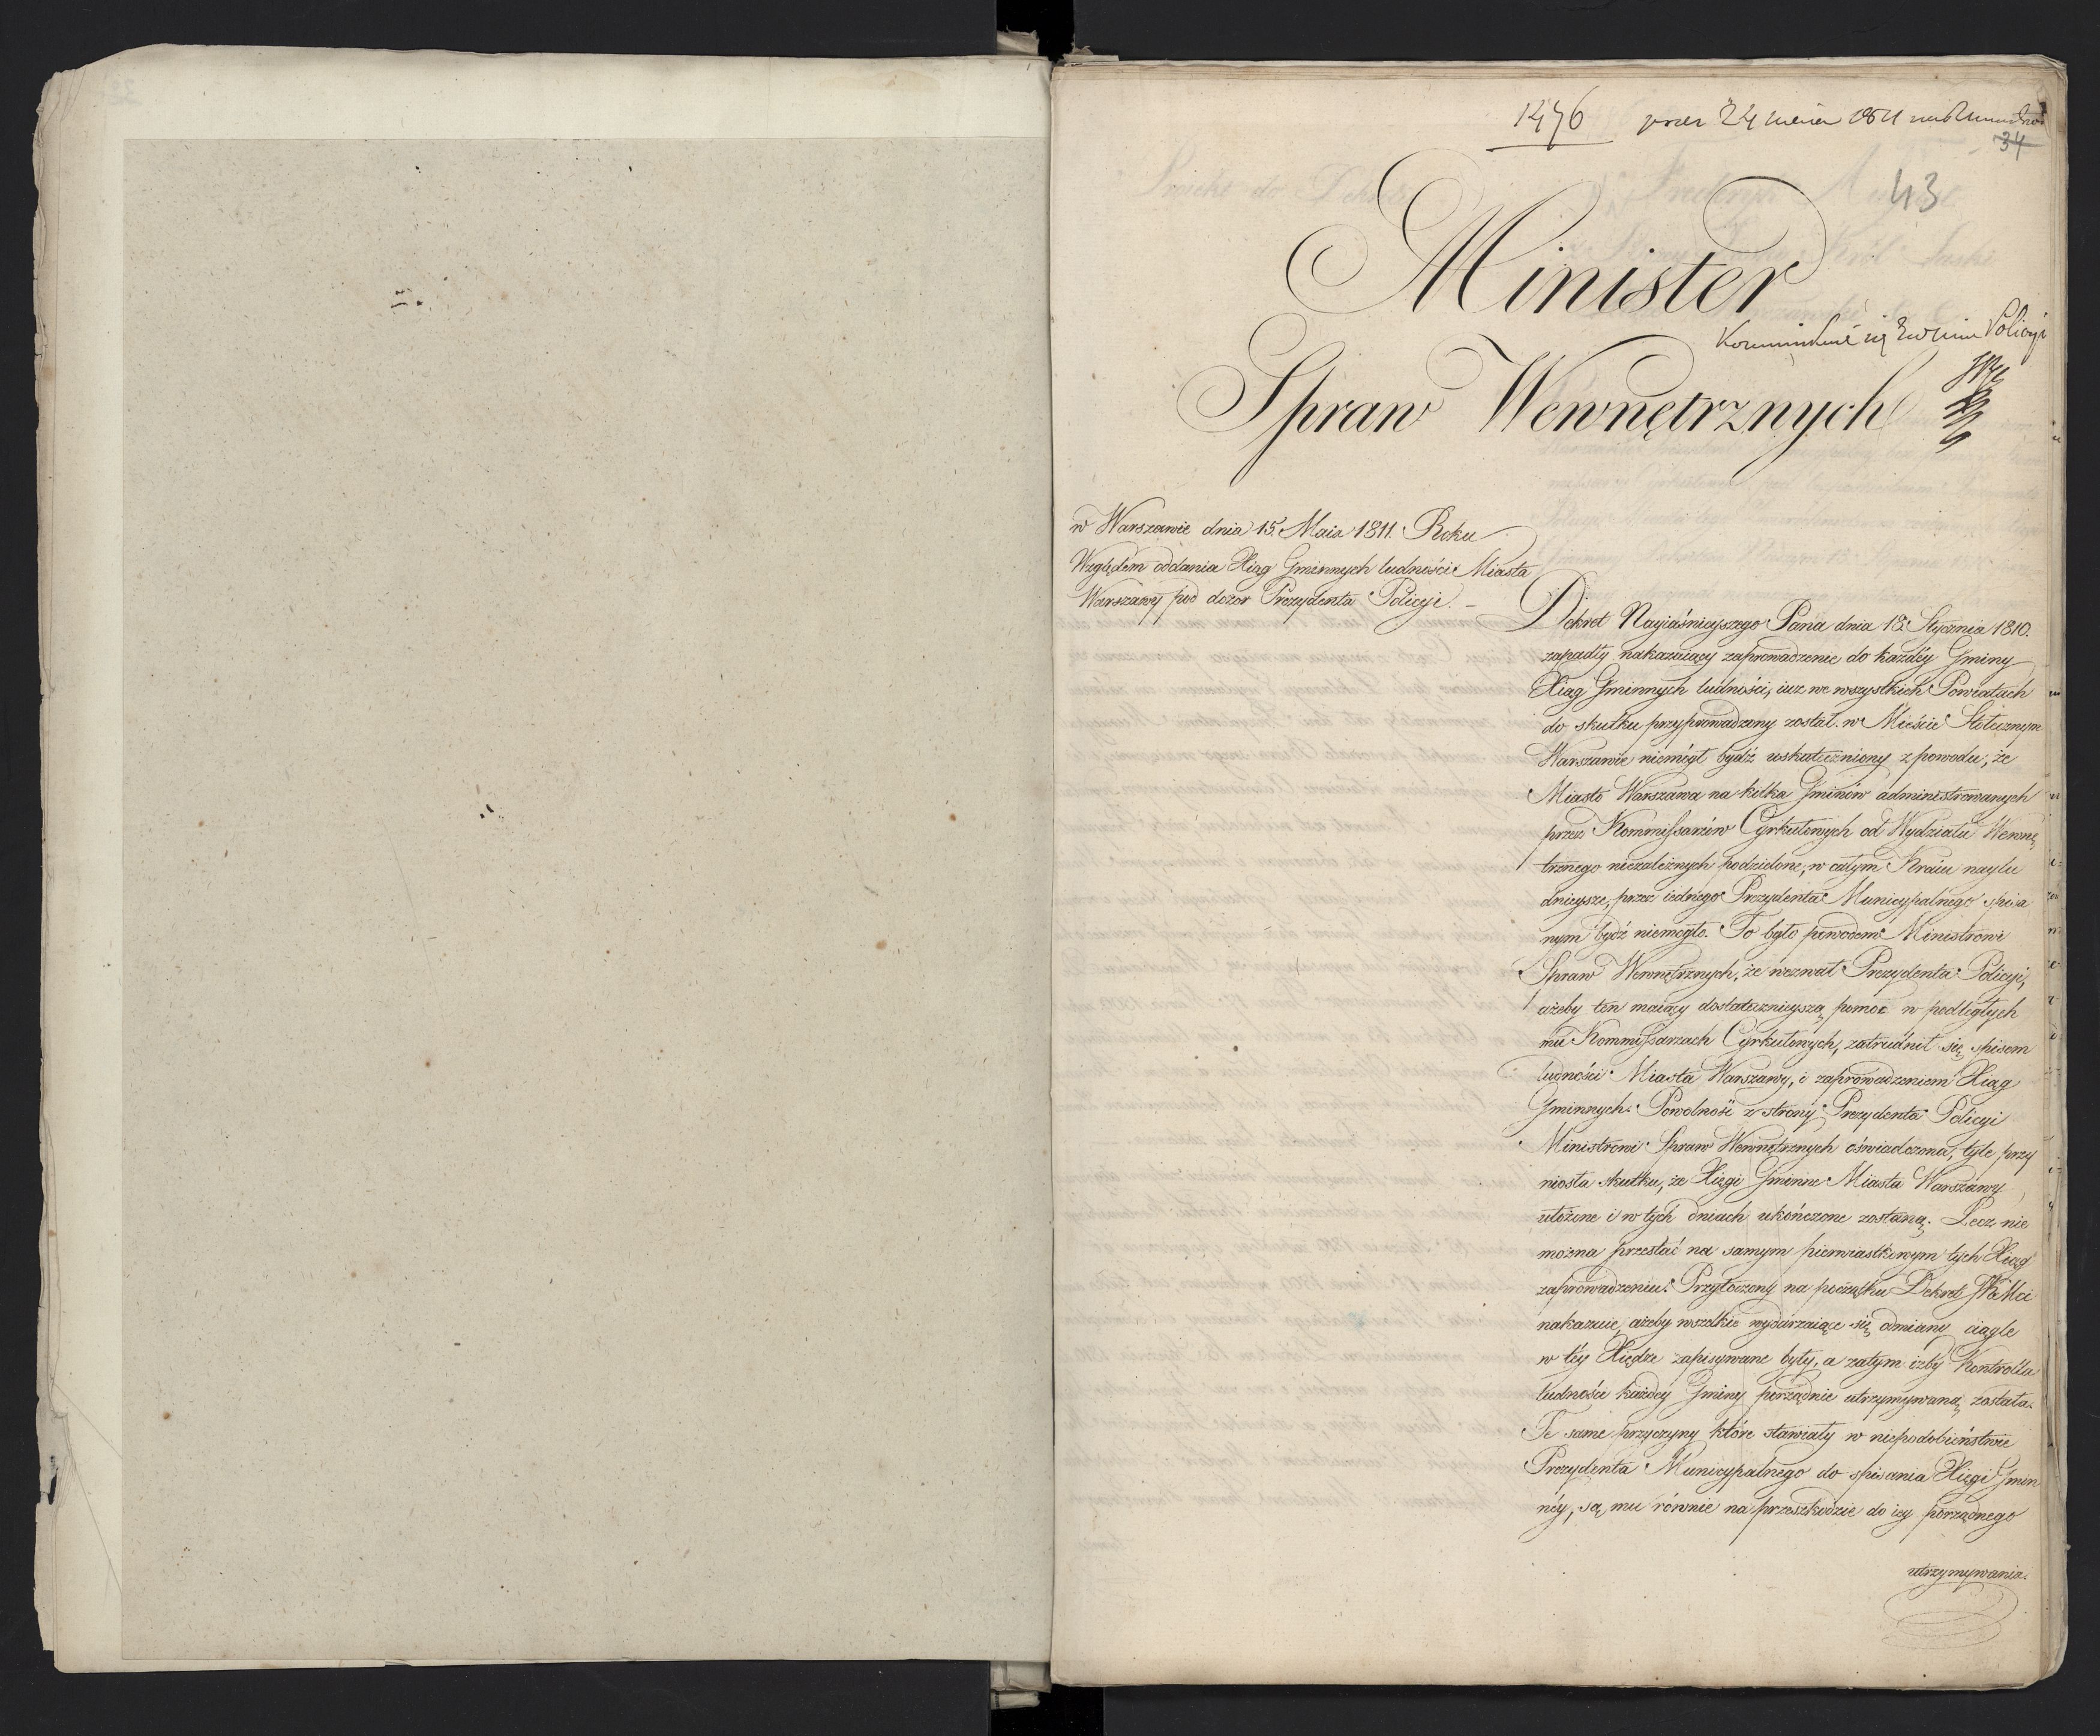 1476 24 1811
34
43
Minister
Policyi
Spraw Wewnętrznych
w Warszawie dnia 15. Maia 1811. Roku
Względem oddania Xiąg Gminnych ludności Miasta
Warszawy pod dozor Prezydenta Policyi. –
Dekret Nayiaśnieyszego Pana dnia 18. Stycznia 1810.
zapadły nakazuiący zaprowadzenie do każdéy Gminy
Xiąg Gminnych ludności, iuż we wszystkich Powiatach
do skutku przyprowadzony został. w Mieście Stołecznym
Warszawie niemógł bydź uskuteczniony z powodu, że
Miasto Warszawa na kilka Gminów administrowanych
przez Kommissarzów Cyrkułowych od Wydziału Wewnę
trznego niezależnych podzielone, w całym Kraiu naylu
dnieysze, przez iednego Prezydenta Municypalnego spisa
nym bydź niemogło. To było powodem Ministrowi
Spraw Wewnętrznych, że wezwał Prezydenta Policyi,
ażeby ten maiący dostatecznieyszą pomoc w podległych
mu Kommissarzach Cyrkułowych, zatrudnił się spisem
ludności Miasta Warszawy, i zaprowadzeniem Xiąg
Gminnych. Powolność z strony Prezydenta Policyi
Ministrowi Spraw Wewnętrznych oświadczona, tyle przy
niosła skutku, że Xięgi Gminne Miasta Warszawy
ułożone i w tych dniach ukończone zostaną. Lecz nie
można przestać na samym pierwiastkowym tych Xiąg
zaprowadzeniu. Przytoczony na początku Dekret JKMci
nakazuie, ażeby wszelkie wydarzaiące się odmiany ciągle
w téy Xiędze zapisywane były, a zatym iżby Kontrolla
ludności każdey Gminy porządnie utrzymywaną została.
Te same przyczyny które stawiały w niepodobieństwie
Prezydenta Municypalnego do spisania Xięgi Gmin
néy, są mu równie na przeszkodzie do iey porządnego
utrzymywania.